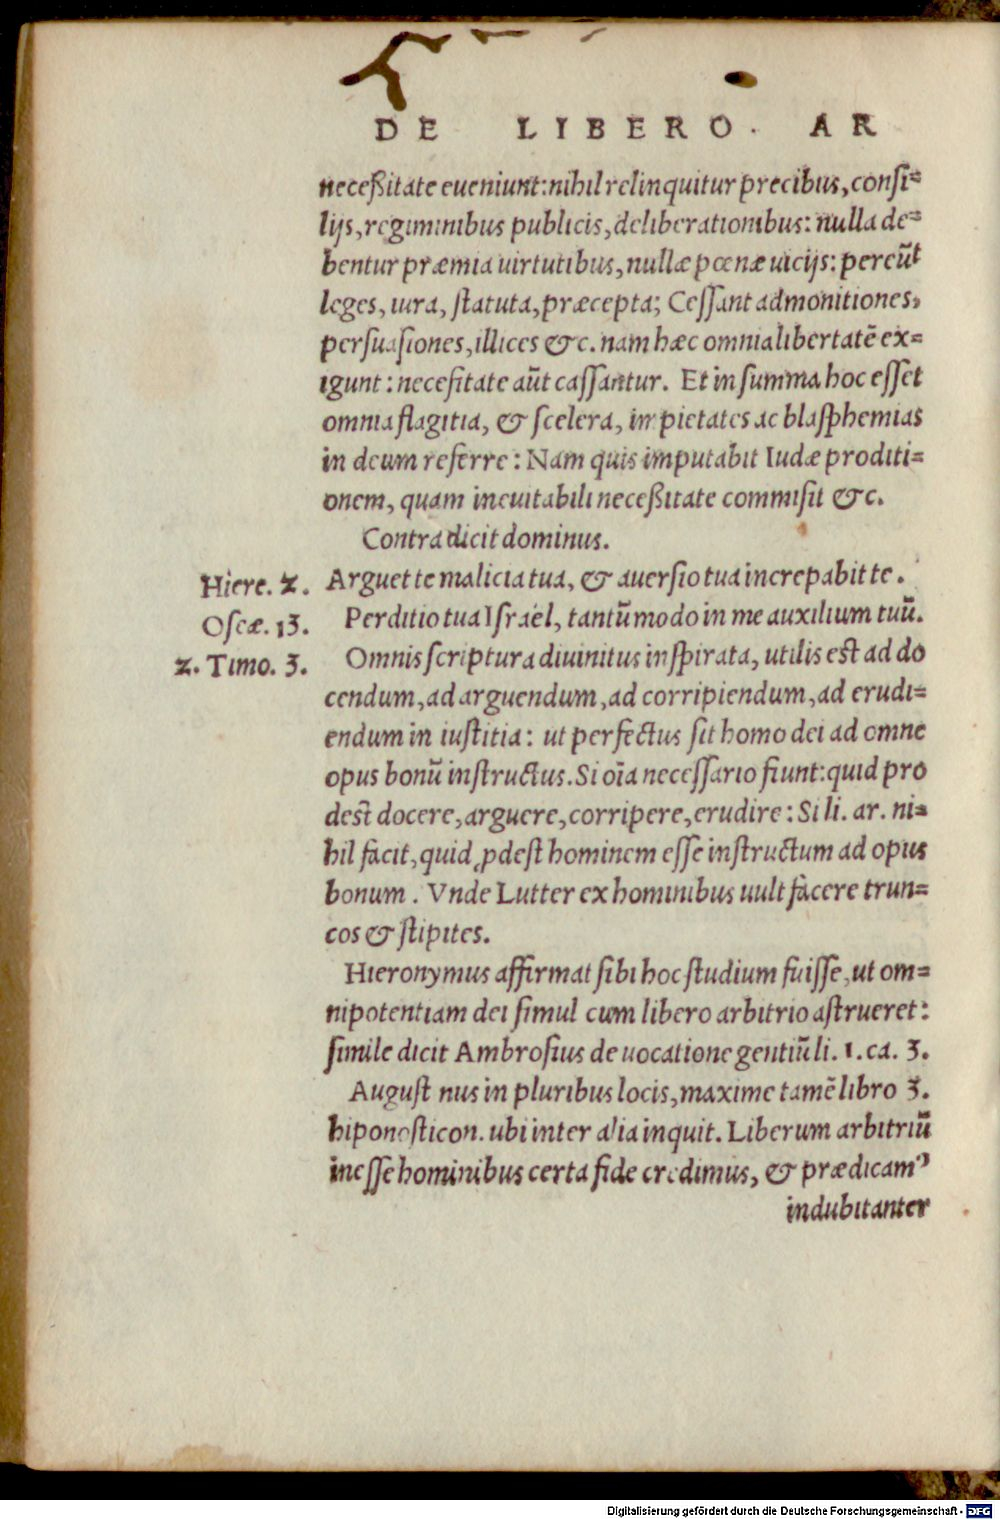 DE LIBERO. AR
neceßitate eueniunt: nihil relinquitur precibus, consi=
lijs, regiminibus publicis, deliberationibus: nulla de=
bentur præmia uirtutibus, nullæ pœnæ uicijs: pereũt
leges, iura, statuta, præcepta; Cessant admonitiones,
persuasiones, illices &c. nam hæc omnia libertatẽ ex=
igunt: necesitate aũt cassantur. Et in summa hoc esset
omnia flagitia, & scelera, impietates ac blasphemias
in deum referre: Nam quis imputabit Iudæ proditi=
onem, quam ineuitabili neceßitate commisit &c.
Contradicit dominus.
Hiere. 2. Arguet te malicia tua, & auersio tua increpabit te.
Oseæ. 13. Perditio tua Israel, tantũmodo in me auxilium tuũ.
2. Timo. 3. Omnis scriptura diuinitus inspirata, utilis est ad do
cendum, ad arguendum, ad corripiendum, ad erudi=
endum in iustitia: ut perfectus sit homo dei ad omne
opus bonũ instructus. Si oĩa necessario fiunt: quid pro
dest docere, arguere, corripere, erudire: Si li. ar. ni=
hil facit, quid ꝓdest hominem esse instructum ad opus
bonum. Vnde Lutter ex hominibus uult facere trun=
cos & stipites.
Hieronymus affirmat sibi hoc studium fuisse, ut om=
nipotentiam dei simul cum libero arbitrio astrueret:
simile dicit Ambrosius de uocatione gentiũ li. 1. ca. 3.
August nus in pluribus locis, maxime tamẽ libro 3.
hiponosticon. ubi inter alia inquit. Liberum arbitriũ
inesse hominibus certa fide credimus, & prædicamꝰ
indubitanter
Digitalisierung gefördert durch die Deutsche Forschungsgemeinschaft - DFG